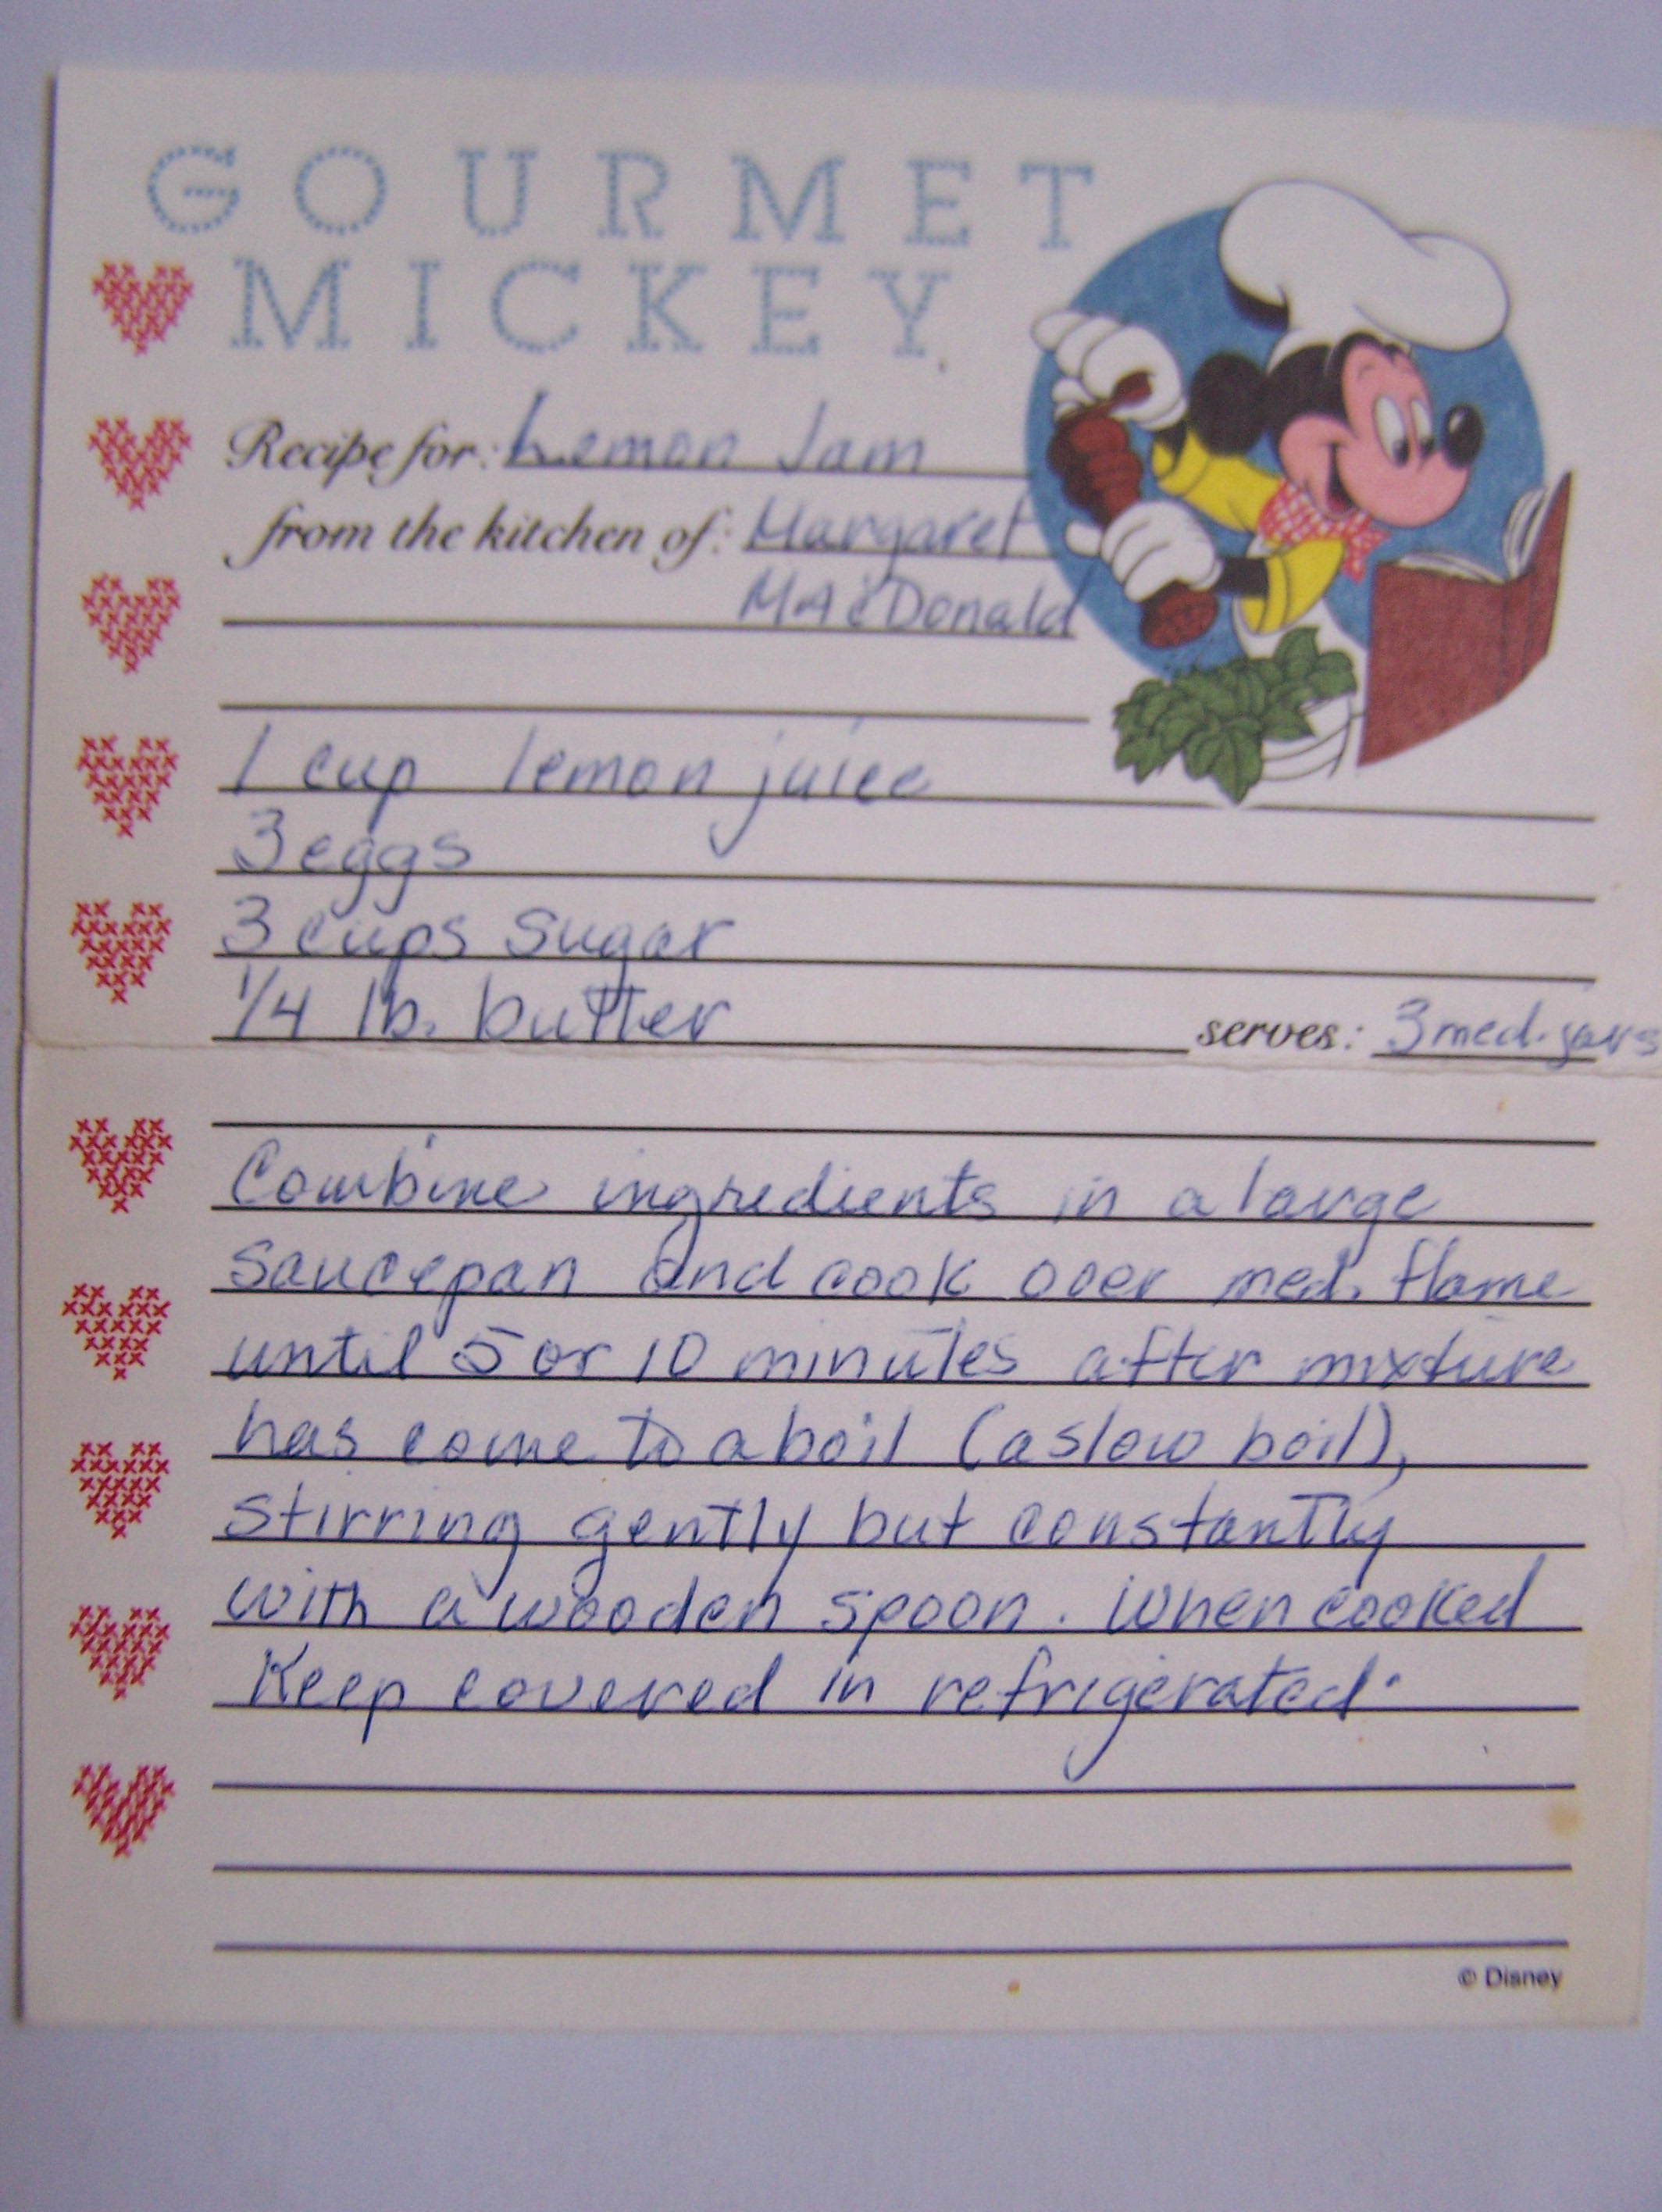 GOURMET
MICKEY
Recipe for: Lemon Jam
from the kitchen of: Margaret
MacDonald
1 cup lemon juice
3 eggs
3 cups sugar
1/4 lb. butter
serves: 3 med. jars
Combine ingredients in a large
saucepan and cook over med. flame
until 5 or 10 minutes after mixture
has come to a boil (a slow boil),
stirring gently but constantly
with a wooden spoon. When cooked
Keep covered in refrigerated.
© Disney